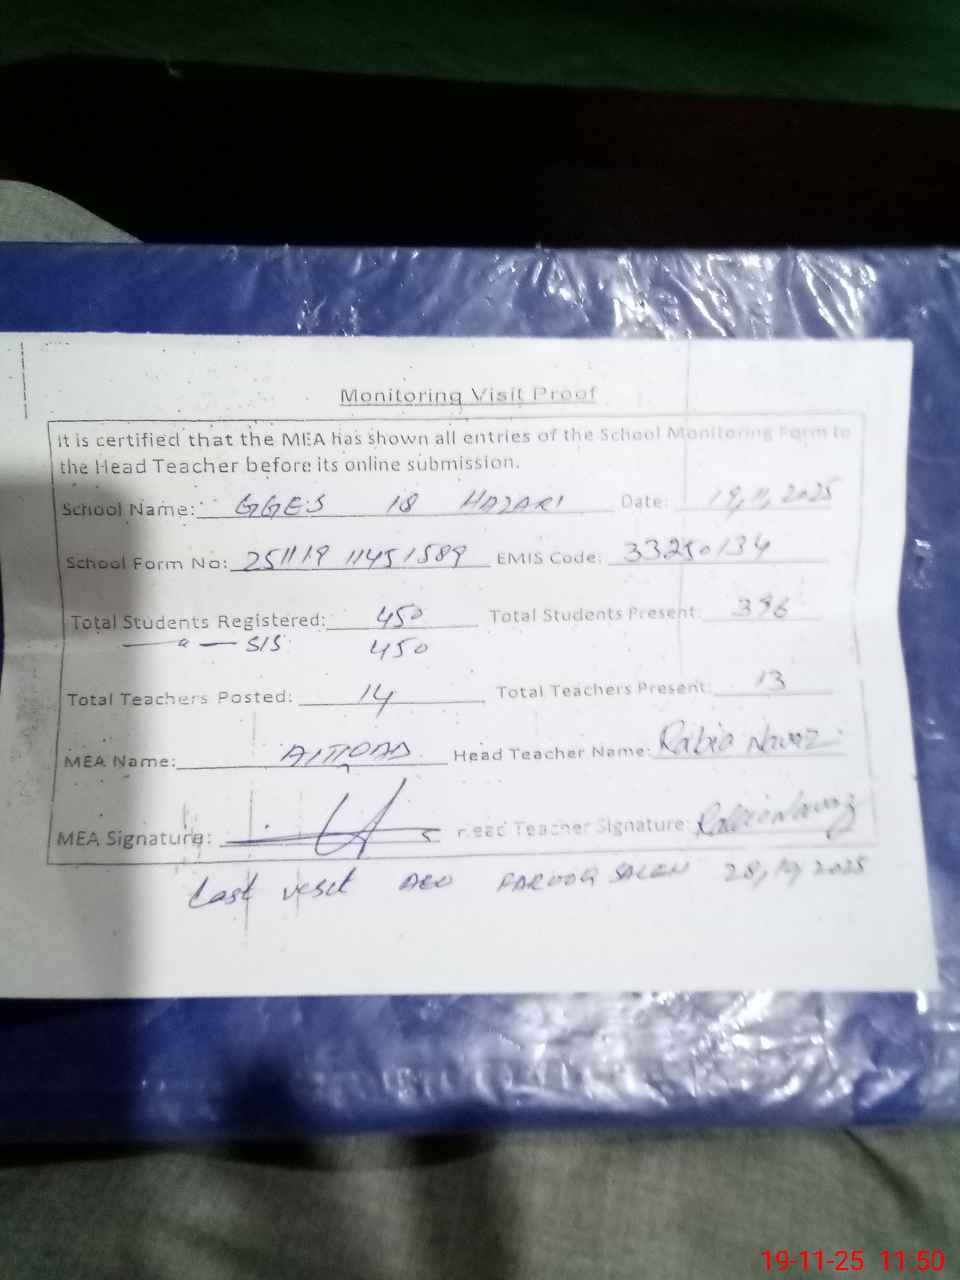 Monitoring Visit Proof
It is certified that the MEA has shown all entries of the School Monitoring Form to
the Head Teacher before its online submission.
School Name: GGES 18 HAZARI Date: 19,11,2025
School Form No: 251119 11451589 EMIS Code: 33250134
Total Students Registered: 450 Total Students Present: 396
— " — SIS 450
Total Teachers Posted: 14 Total Teachers Present: 13
MEA Name: Head Teacher Name: Rabia Nawaz
MEA Signature: Head Teacher Signature: Rabia Nawaz
Last vesit AEO FAROOQ 2025
19-11-25 11:50